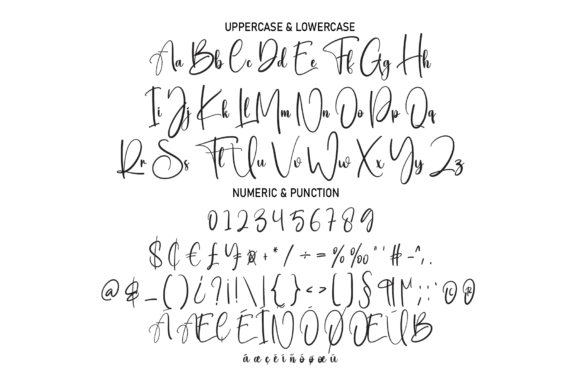 UPPERCASE & LOWERCASE
Aa Bb Cc Dd Ee Ff Gg Hh
Ii Jj Kk Ll Mm Nn Oo Pp Qq
Rr Ss Tt Uu Vv Ww Xx Yy Zz
NUMERIC & PUNCTION
0 1 2 3 4 5 6 7 8 9
$ ₵ € £ ¥ ¤ + * / ÷ = % ‰ " ' # - ^ , .
@ & _ ( ) ¿ ? ¡ ! \ | { } < > [ ] § ¶ µ ; : © ®
Á Æ Ç É Í Ñ Ó Ø Œ Ú ß
á æ ç é í ñ ó ø œ ú